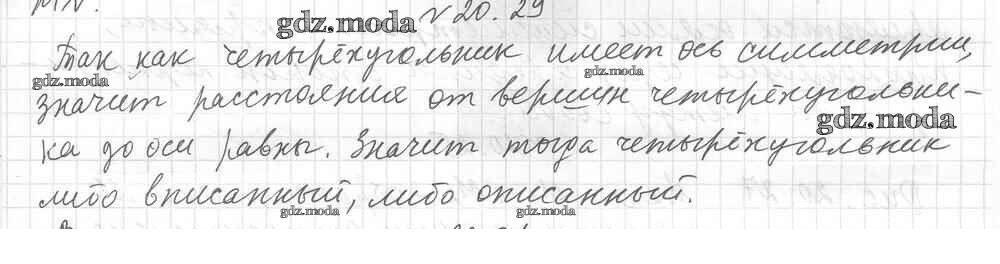 № 20. 29
gdz.moda
Так как четырёхугольник имеет ось симметрии,
gdz.moda gdz.moda
значит расстояния от вершин четырёхугольни-
gdz.moda
ка до оси равны. Значит тогда четырёхугольник
либо вписанный, либо описанный.
gdz.moda gdz.moda